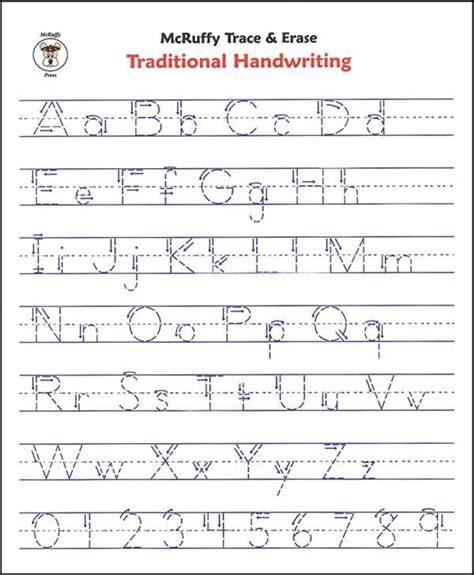 McRuffy
Press
McRuffy Trace & Erase
Traditional Handwriting
A a B b C c D d
E e F f G g H h
I i J j K k L l M m
N n O o P p Q q
R r S s T t U u V v
W w X x Y y Z z
0 1 2 3 4 5 6 7 8 9